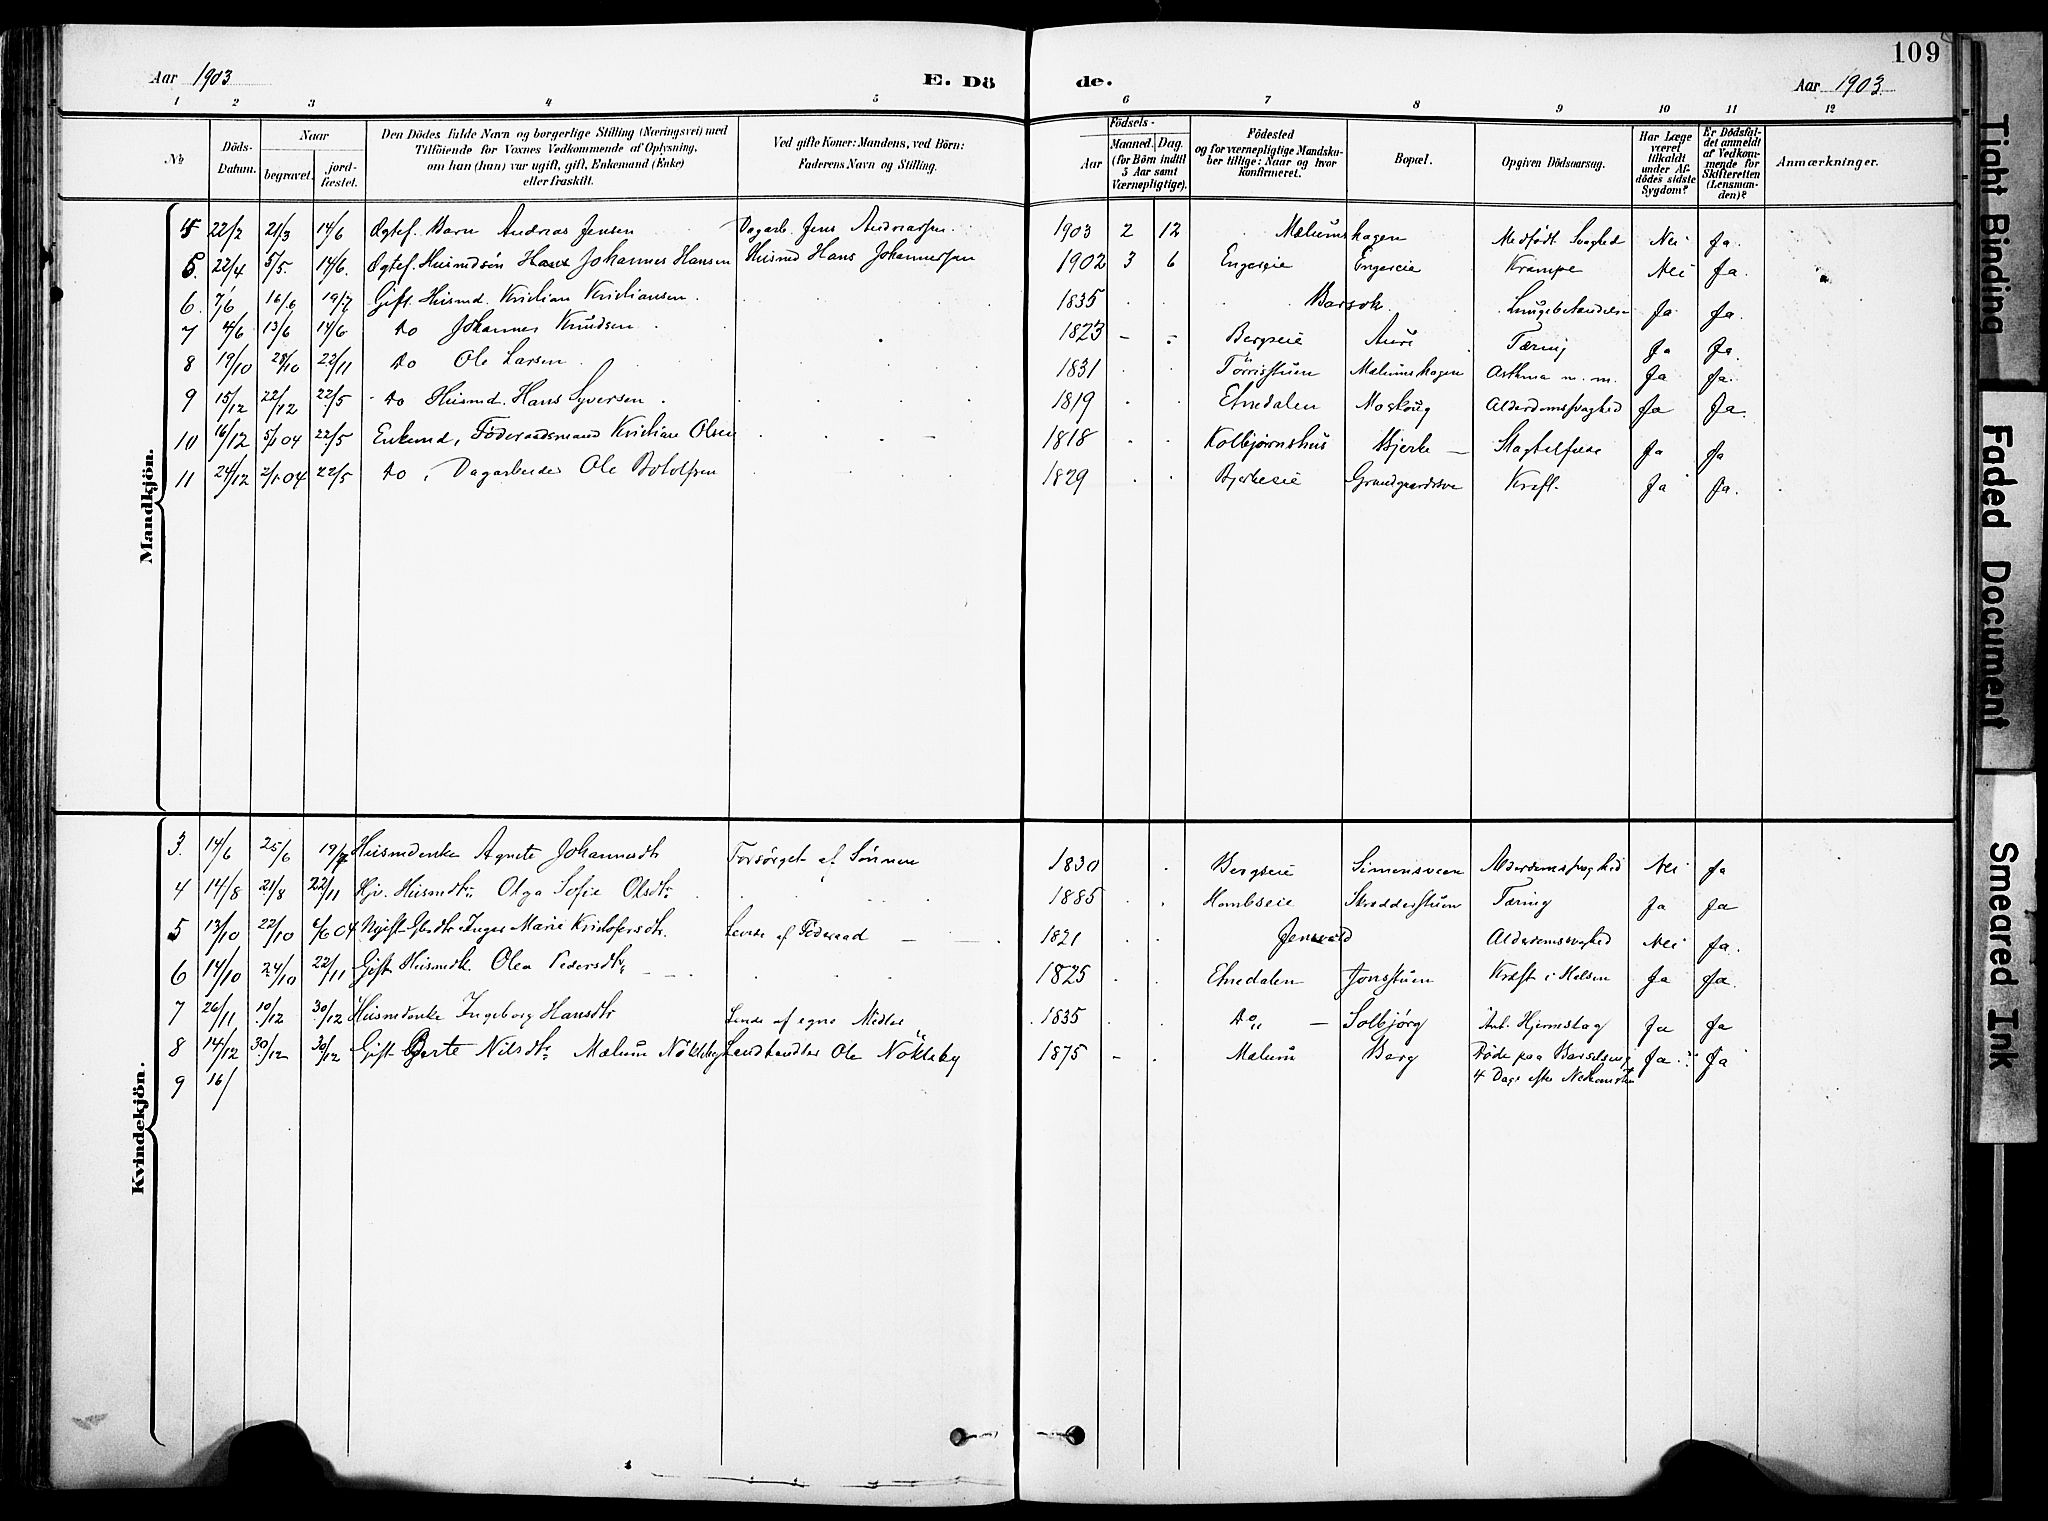 109
Aar 1903 E. Dö de. Aar 1903.
1 2 3 4 5 6 7 8 9 10 11 12
No
Döds-Datum.
Naar
begravet.
jord-fæstet.
Den Dödes fulde Navn og borgerlige Stilling (Næringsvei) med
Tilföiende for Voxnes Vedkommende af Oplysning,
om han (hun) var ugift, gift, Enkemand (Enke)
eller fraskilt.
Ved gifte Koner: Mandens, ved Börn:
Faderens Navn og Stilling.
Födsels-
Aar
Maaned. Dag.
(for Börn indtil
5 Aar samt
Værnepligtige).
Födested
og for værnepligtige Mandsku-
ber tillige: Naar og hvor
konfirmeret.
Bopæl.
Opgiven Dödsaarsag.
Har Læge
været
tilkaldt
under Af-
dödes sidste
Sygdom?
Er Dödsfal-
det anmeldt
af Vedkom-
mende for
Skifteretten
(Lensman-
den)?
Anmærkninger.
Mandkjön.
22/2 21/3 14/6 Ægtef. Barn Andreas Jensen Dagarb. Jens Andreassen. 1903 2 12 Mælumshagen Medfødt Svaghed Nei Ja.
5. 22/4 5/5. 14/6. Ægtef. Husmdsøn Johannes Hansen Husmd Hans Johannessen 1902 3 6 Engeseie Engeseie Krampe Nei Ja.
6. 7/6 16/6 19/7 Gift. Husmd. Kristian Kristiansen 1835 Barsok Ja Ja.
7 4/6 13/6 14/6 do Johannes Knudsen 1823 Bergseie Auri Tæring Ja Ja.
8 19/10 28/10 22/11 do Ole Larsen 1831 Tørrisstuen Mælumshagen Asthma m. m. Ja Ja.
9 15/12 22/12 22/5 do Husmd. Hans Syversen 1819 Etnedalen Moshoug Alderdomssvaghed Ja Ja.
10 16/12 5/1 04 22/5 Enkemd, Føderaadsmand Kristian Olsen 1818 Kolbjørnshus Bjerke Slagtilfælde Ja Ja
11 24/12 2/1 04 22/5 do, Dagarbeider Ole Botolfsen 1829 Bjerkeeie Kræft. Ja Ja.
Kvindekjön.
3. 14/6 25/6 19/7 Husmdenke Agnete Johannesdtr Forsørget af Sønnen 1830 Bergseie Simensveen Alderdomssvaghed Nei Ja
4 14/8 21/8 22/11 Husmdtr. Olga Sofie Olsdtr. 1885 Skrædderstuen Tæring Ja Ja
5 13/10 22/10 6/6 04 Ugift Inger Marie Kristofersdtr. Levde af Føderaad 1821 Jensvold Alderdomssvaghed Nei Ja.
6 14/10 24/10 22/11 Gift Husmdk. Olea Pedersdtr. 1825 Etnedalen Jonsstuen Kræft i Halsen Ja Ja.
7 26/11 10/12 30/12 Husmdenke Ingeborg Hansdtr Levde af egne Midler 1835 do Solbjørg Ant. Hjerneslag Ja Ja
8 14/12 30/12 30/12 Gift Berte Nilsdtr. Mælum Nökleby Landhandler Ole Nökleby 1875 Mælum Berg Døde paa Barselseng Ja. Ja
4 Dage efter Nedkomsten
9 16/
Tight Binding
Faded Document
Smeared Ink